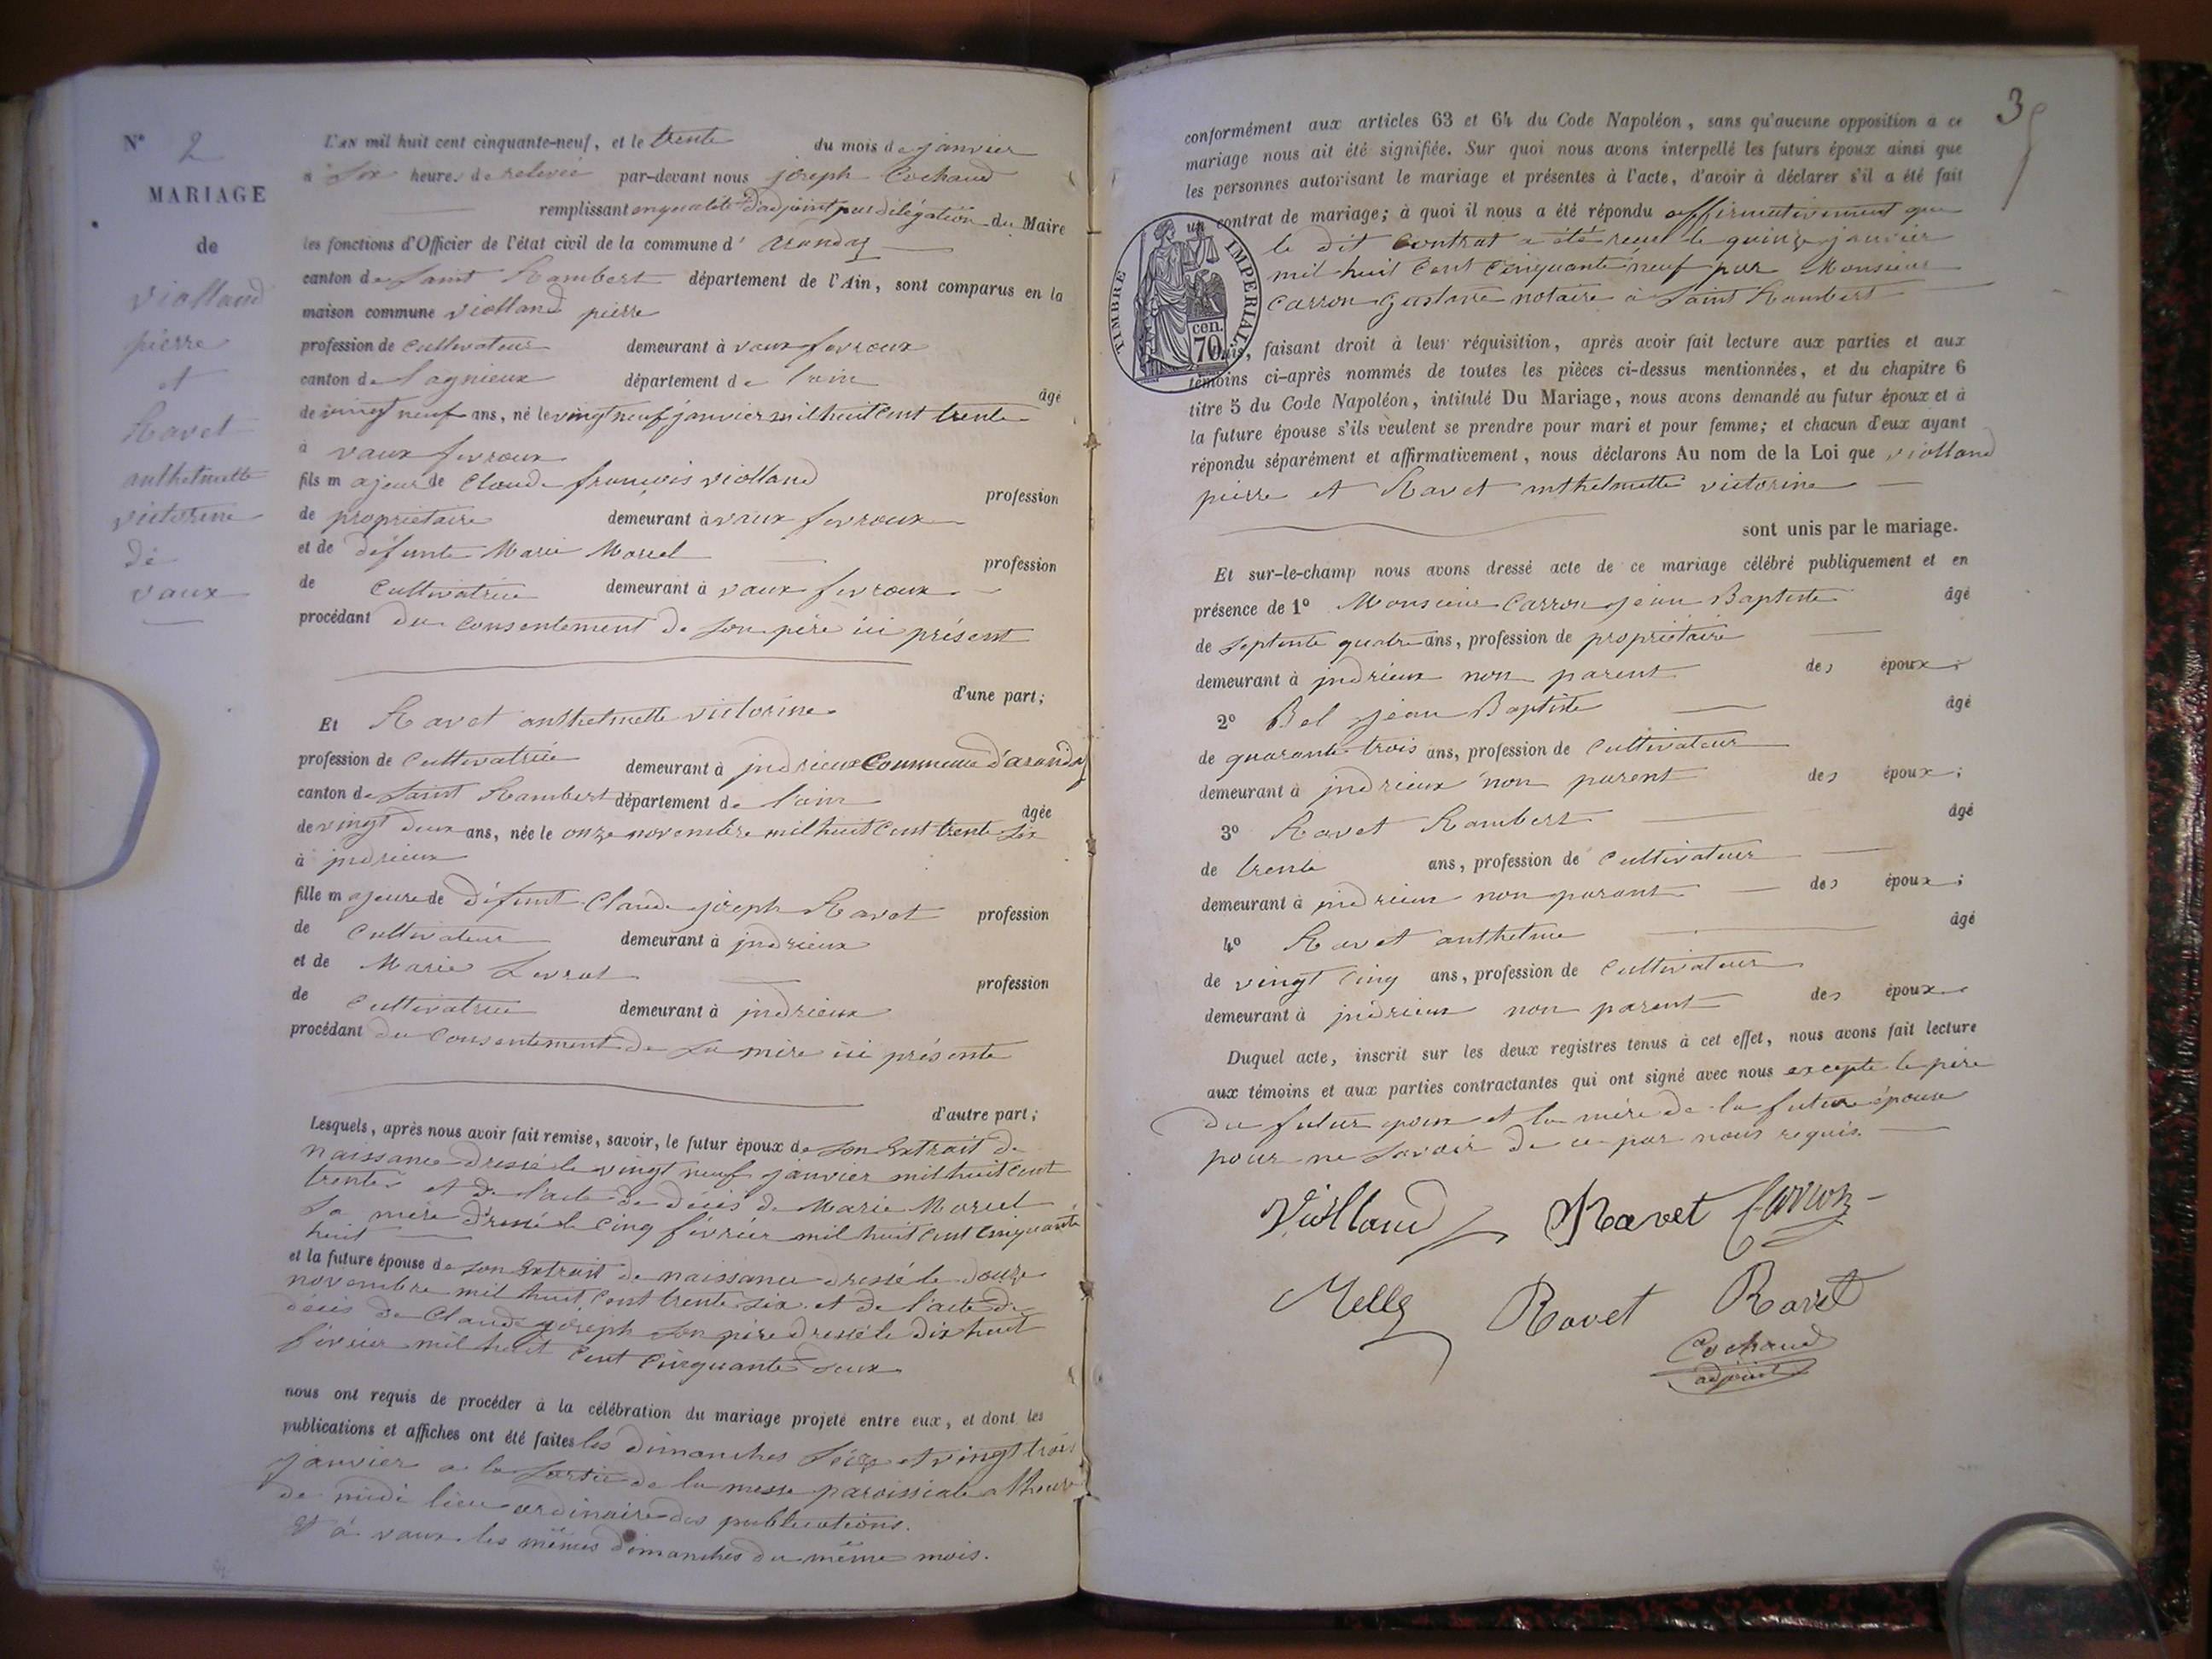 N° 2
MARIAGE
de
Violland
pierre
et
Ravet
anthelmette
victorine
de
vaux
L'AN mil huit cent cinquante-neuf, et le trente du mois de janvier
à six heures de relevée par-devant nous joseph Cochaud
remplissant en qualité d'adjoint par délégation du Maire
les fonctions d'Officier de l'état civil de la commune d' aranday
canton de Saint Rambert département de l'Ain, sont comparus en la
maison commune violland pierre
profession de cultivateur demeurant à vaux fevroux
canton de Lagnieux département de l'ain âgé
de vingt neuf ans, né le vingt neuf janvier mil huit cent trente
à vaux fevroux
fils majeur de Claude françois violland profession
de propriétaire demeurant à vaux fevroux
et de défunte Marie Morel profession
de Cultivatrice demeurant à vaux fevroux
procédant du consentement de son père ici présent
d'une part;
Et Ravet anthelmette victorine
profession de Cultivatrice demeurant à jndrieux Commune d'aranday
canton de Saint Rambert département de l'ain âgée
de vingt deux ans, née le onze novembre mil huit cent trente six
à jndrieux
fille majeure de défunt Claude joseph Ravet profession
de Cultivateur demeurant à jndrieux
et de Marie Levrat profession
de Cultivatrice demeurant à jndrieux
procédant du Consentement de sa mère ici présente
d'autre part;
Lesquels, après nous avoir fait remise, savoir, le futur époux de son Extrait de
naissance dressé le vingt neuf janvier mil huit cent
trente et de l'acte de décès de Marie Morel
sa mère dressé le cinq février mil huit cent cinquante
huit
et la future épouse de son Extrait de naissance dressé le douze
novembre mil huit cent trente six et de l'acte de
décès de Claude joseph son père dressé le dix huit
février mil huit cent cinquante deux
nous ont requis de procéder à la célébration du mariage projeté entre eux, et dont les
publications et affiches ont été faites les dimanches seize et vingt trois
janvier a la sortie de la messe paroissiale a l'heure
de midi lieu ordinaire des publications.
et à vaux les mêmes dimanches du même mois.
35
conformément aux articles 63 et 64 du Code Napoléon, sans qu'aucune opposition à ce
mariage nous ait été signifiée. Sur quoi nous avons interpellé les futurs époux ainsi que
les personnes autorisant le mariage et présentes à l'acte, d'avoir à déclarer s'il a été fait
un contrat de mariage; à quoi il nous a été répondu affirmativement que
le dit contrat a été reçu le quinze janvier
mil huit cent cinquante neuf par Monsieur
Carron Gustave notaire à Saint Rambert
TIMBRE IMPERIAL
70 cen.
Puis, faisant droit à leur réquisition, après avoir fait lecture aux parties et aux
témoins ci-après nommés de toutes les pièces ci-dessus mentionnées, et du chapitre 6
titre 5 du Code Napoléon, intitulé Du Mariage, nous avons demandé au futur époux et à
la future épouse s'ils veulent se prendre pour mari et pour femme; et chacun d'eux ayant
répondu séparément et affirmativement, nous déclarons Au nom de la Loi que violland
pierre et Ravet anthelmette victorine
sont unis par le mariage.
Et sur-le-champ nous avons dressé acte de ce mariage célébré publiquement et en
présence de 1° Monsieur Carron jean Baptiste âgé
de septente quatre ans, profession de propriétaire
demeurant à jndrieux non parent des époux;
2° Bel jean Baptiste âgé
de quarante trois ans, profession de Cultivateur
demeurant à jndrieux non parent des époux;
3° Ravet Rambert âgé
de trente ans, profession de Cultivateur
demeurant à jndrieux non parant des époux;
4° Ravet anthelme âgé
de vingt cinq ans, profession de Cultivateur
demeurant à jndrieux non parent des époux
Duquel acte, inscrit sur les deux registres tenus à cet effet, nous avons fait lecture
aux témoins et aux parties contractantes qui ont signé avec nous excepté le père
du futur époux et la mère de la future épouse
pour ne savoir de ce par nous requis
Violland Ravet Carron
Ravet Ravet
Cochaud
adjoint